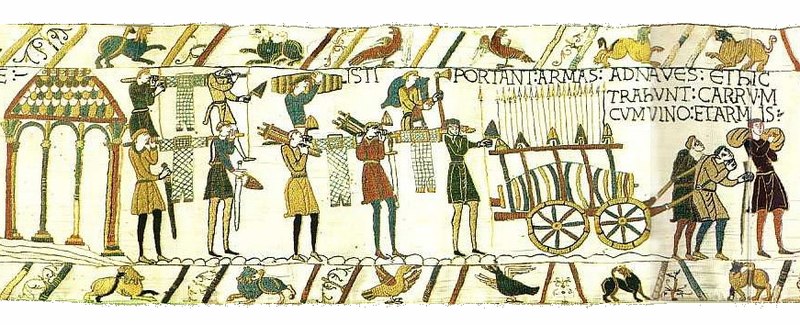 E: ISTI PORTANT: ARMAS: ADNAVES: ETHIC
TRAhUNT: CARRVM
CVMVINO: ETARMIS: